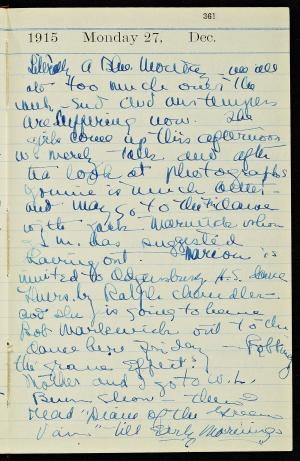 361
1915 Monday 27, Dec.
Literally a Blue Monday – we all
ate too much over the
week-end and our tempers
are suffering now. The
girls come up this afternoon
we merely talk and after
tea look at photographs
is much better
and may go to the dance
with Jack Marwick when
J.M. has suggested
having out. Marion is
invited to Ogdensburg H.S. dance
Thurs. by Ralph Chandler
and she is going to have
Bob out to the
dance here Friday –
the grand effect!
Mother and I go to W.L.
Burns Show – then
read "Diane of the Green
Van" till early morning